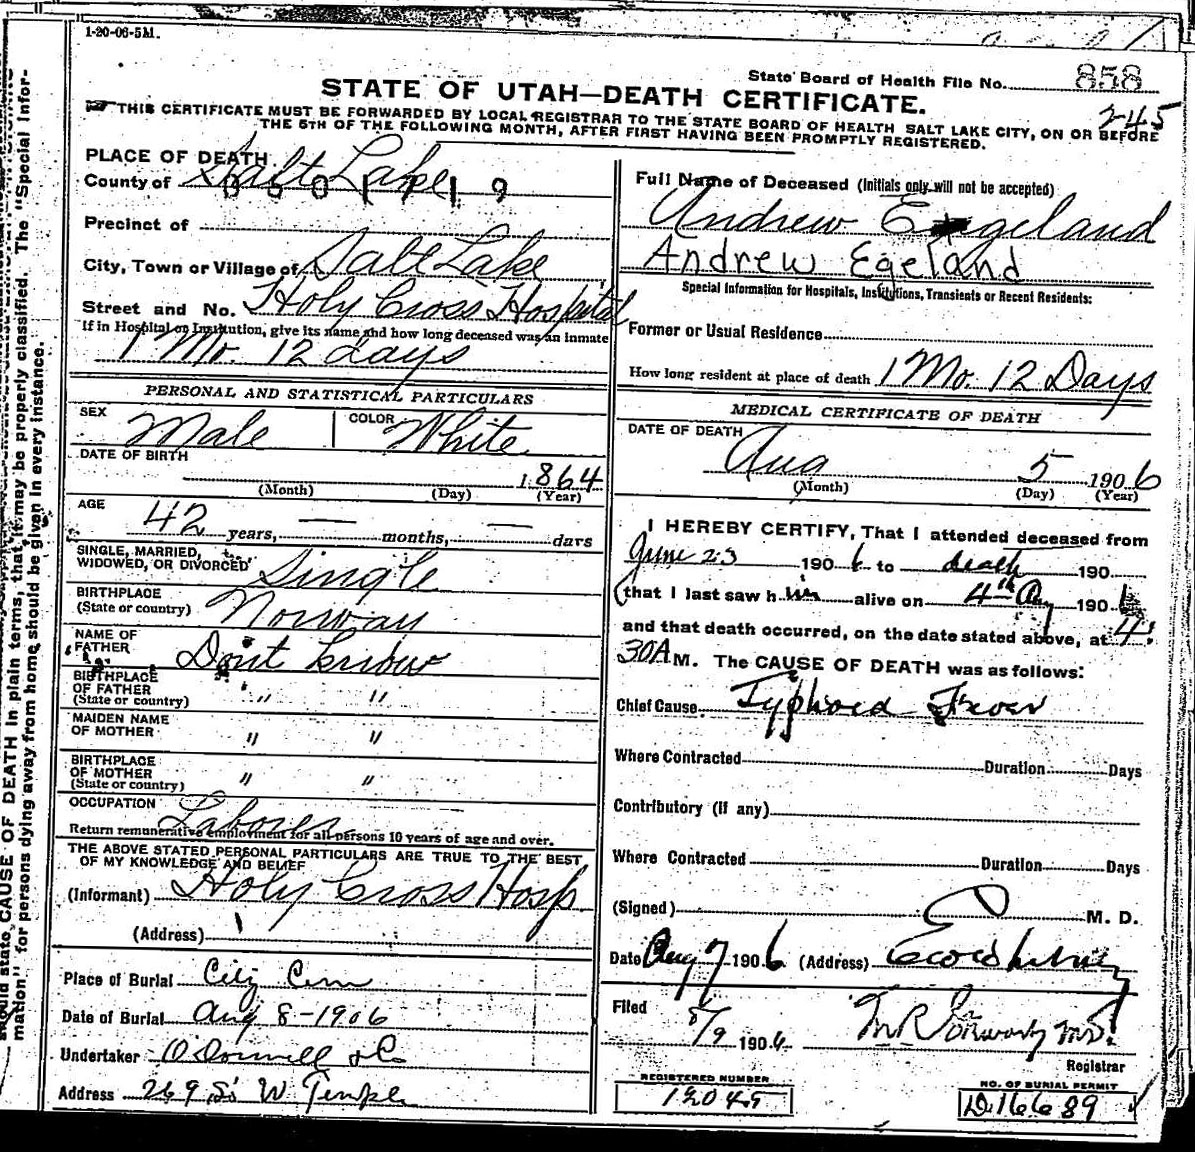 1-20-06-5M.
State Board of Health File No. 858
245
STATE OF UTAH—DEATH CERTIFICATE.
THIS CERTIFICATE MUST BE FORWARDED BY LOCAL REGISTRAR TO THE STATE BOARD OF HEALTH SALT LAKE CITY, ON OR BEFORE
THE 5TH OF THE FOLLOWING MONTH, AFTER FIRST HAVING BEEN PROMPTLY REGISTERED.
PLACE OF DEATH.
County of Salt Lake
Precinct of
City, Town or Village of Salt Lake
Street and No. Holy Cross Hospital
If in Hospital or Institution, give its name and how long deceased was an inmate
1 Mo. 12 days
PERSONAL AND STATISTICAL PARTICULARS
SEX Male COLOR White
DATE OF BIRTH
1864
(Month) (Day) (Year)
AGE
42 years, — months, — days
SINGLE, MARRIED,
WIDOWED, OR DIVORCED Single
BIRTHPLACE
(State or country) Norway
NAME OF
FATHER Dont know
BIRTHPLACE
OF FATHER
(State or country) " "
MAIDEN NAME
OF MOTHER " "
BIRTHPLACE
OF MOTHER
(State or country) " "
OCCUPATION Laborer
Return remunerative employment for all persons 10 years of age and over.
THE ABOVE STATED PERSONAL PARTICULARS ARE TRUE TO THE BEST
OF MY KNOWLEDGE AND BELIEF
(Informant) Holy Cross Hosp
(Address)
Place of Burial City Cem
Date of Burial Aug 8-1906
Undertaker O'Donnell & Co
Address 269 So W Temple
Full Name of Deceased (Initials only will not be accepted)
Andrew Egeland
Andrew Egeland
Special Information for Hospitals, Institutions, Transients or Recent Residents:
Former or Usual Residence
How long resident at place of death 1 Mo. 12 Days
MEDICAL CERTIFICATE OF DEATH
DATE OF DEATH
Aug 5 1906
(Month) (Day) (Year)
I HEREBY CERTIFY, That I attended deceased from
June 23 1906 to death 190
that I last saw him alive on 4th Aug 1906
and that death occurred, on the date stated above, at 4:
30A M. The CAUSE OF DEATH was as follows:
Chief Cause Typhoid Fever
Where Contracted Duration Days
Contributory (if any)
Where Contracted Duration Days
(Signed) M. D.
Date Aug 7 1906 (Address)
Filed 8/9 1906 M.D.
Registrar
REGISTERED NUMBER
12049
NO. OF BURIAL PERMIT
D16689
should state CAUSE OF DEATH in plain terms, that it may be properly classified. The "Special Infor-
mation" for persons dying away from home should be given in every instance.